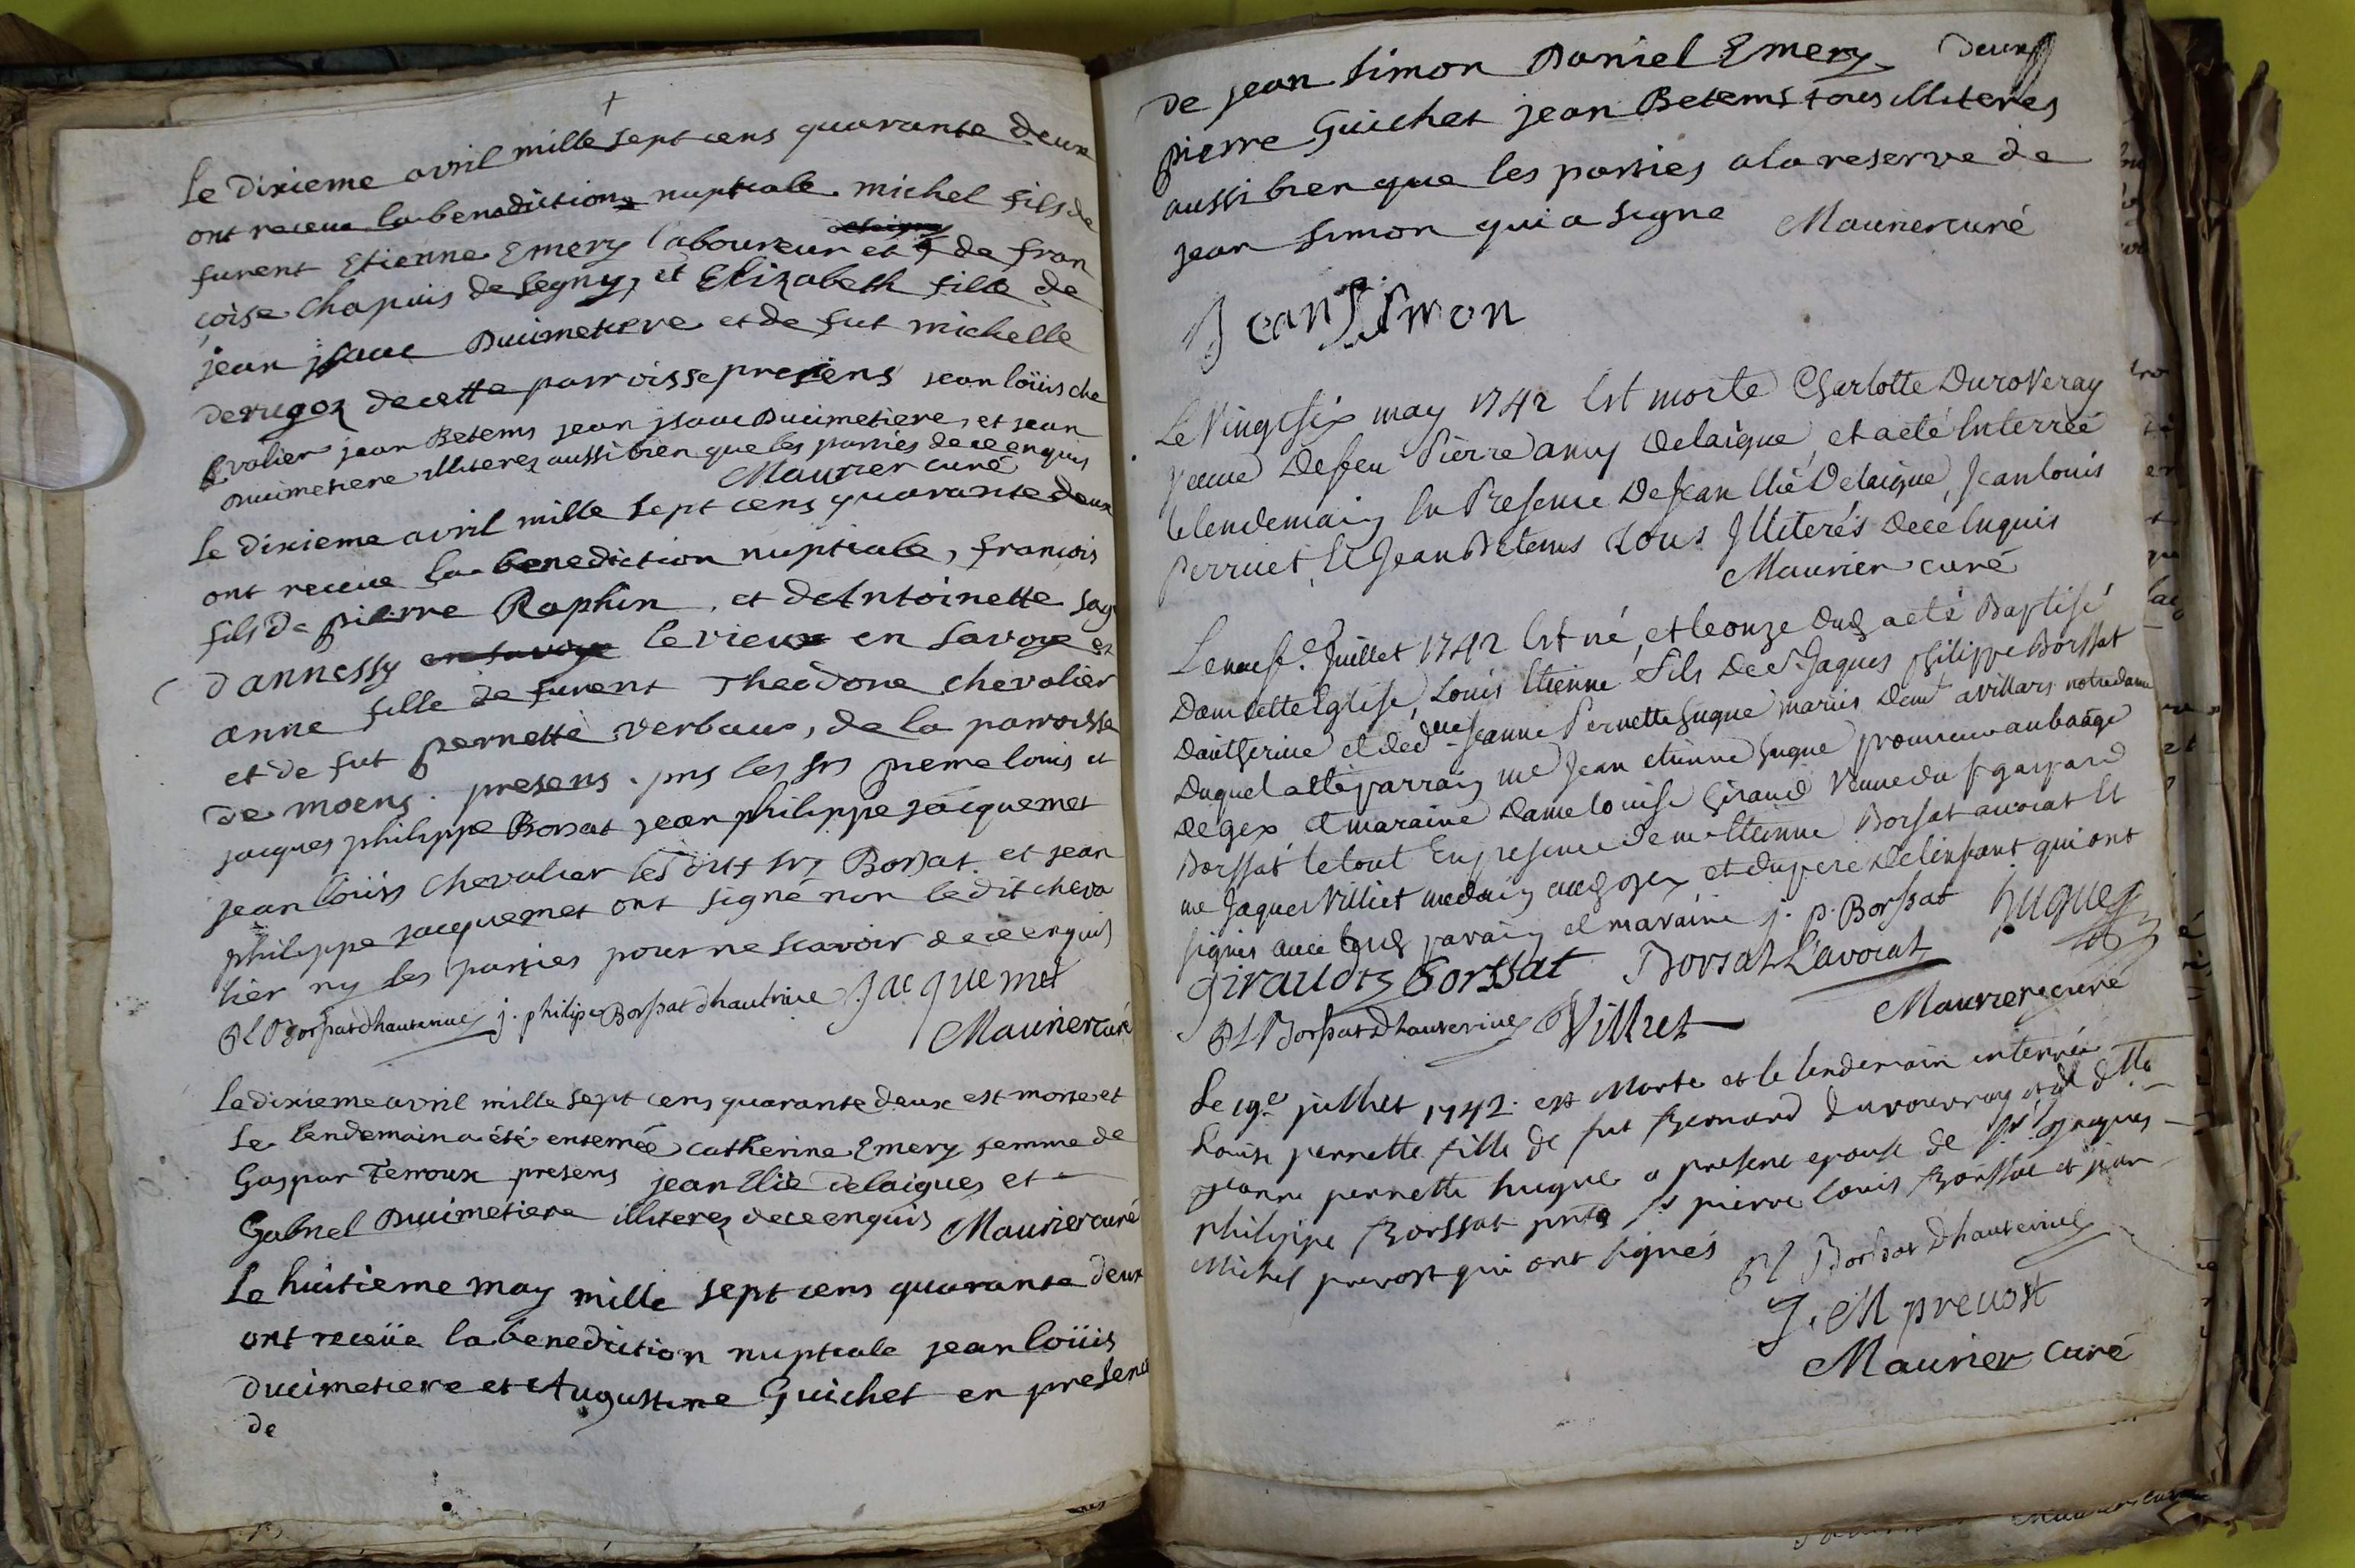 Le dixieme avril mille sept cens quarante deux
ont receue la benediction nuptiale michel fils de
furent Etienne Emery laboureur et de fran
çoise chapuis de segny, et Elizabeth fille de
jean jsaac Duimetiere et de fut michelle
derugoz de cette parroisse presens jean loüis che
valier jean Betems jean jsaac Ducimetiere, et jean
Ducimetiere illiterez aussi bien que les parties de ce enquis
Maurier curé
Le dixieme avril mille sept cens quarante deux
ont receue la benediction nuptiale, francois
fils de pierre Raphin, et de Antoinette sag
dannessy en savoye le vieux en savoye et
anne fille de furent Theodore chevalier
et de fut pernette verbaux, de la parroisse
de moens. presens. pns les srs pierre louis et
jacques philippe Borsat jean philippe jacquemet
jean loüis chevalier les dits srs Borsat et jean
philippe jacquemet ont signé non le dit cheva
lier ny les parties pour ne scavoir de ce enquis
PL Borssat dhauterive j. philipe Borssat dhautrive jacquemet
Maurier curé
Le dixieme avril mille sept cens quarante deux est morte et
le lendemain a été enterrée catherine Emery femme de
Gaspar Terroux presens jean Elie delaigues et
Gabriel Duimetiere illiterez de ce enquis Maurier curé
Le huitieme may mille sept cens quarante deux
ont receüe la benediction nuptiale jean loüis
ducimetiere et Augustine Guichet en presence
de
de jean simon Daniel Emery
pierre Guichet jean Betems tous illiteres
aussi bien que les parties a la reserve de
jean simon qui a signe Maurier curé
Jean Simon
Le Vingt six may 1742 Est morte Charlotte Duroveray
veuve De feu Pierre amy Delaigue, et a eté Enterrée
le lendemain En Presence De Jean Elie Delaigue, Jean louis
Perruet, Et Jean Betems Tous Jlliterés De ce Enquis
Maurier curé
Le neufe Juillet 1742 Est né, et le onze dud a eté Baptisé
Dans cette Eglise, Louis Etienne Fils De Sr Jaques philippe Borssat
Dautherive et de dlle Jeanne Pernette hugue mariés Demt a villars notre dame
Duquel a eté parrain me Jean etienne hugue procureur au baage
de gex et maraine dame louise Giraud Veuve du sr gaspard
Borssat le tout En presence de me Etienne Borsat avocat Et
me Jaques Villiet medecin aud gex et du pere de lenfant qui ont
signés avec lesd parain et maraine j. p. Borssat hugues
giraudtz Borssat Borsat L'avocat
PL Borssat Dhauterive Villiet Maurier curé
Le 19e juillet 1742. est Morte et le lendemain enterrée
Louise pernette fille de fut Bernard duroveray et de dlle
jeanne pernette hugue a present epouse de Sr Jaques
philippe Borssat pnts sr pierre louis Borssat et jean
Michel prevost qui ont signés PL Borssat Dhauterive
J. M prevost
Maurier curé